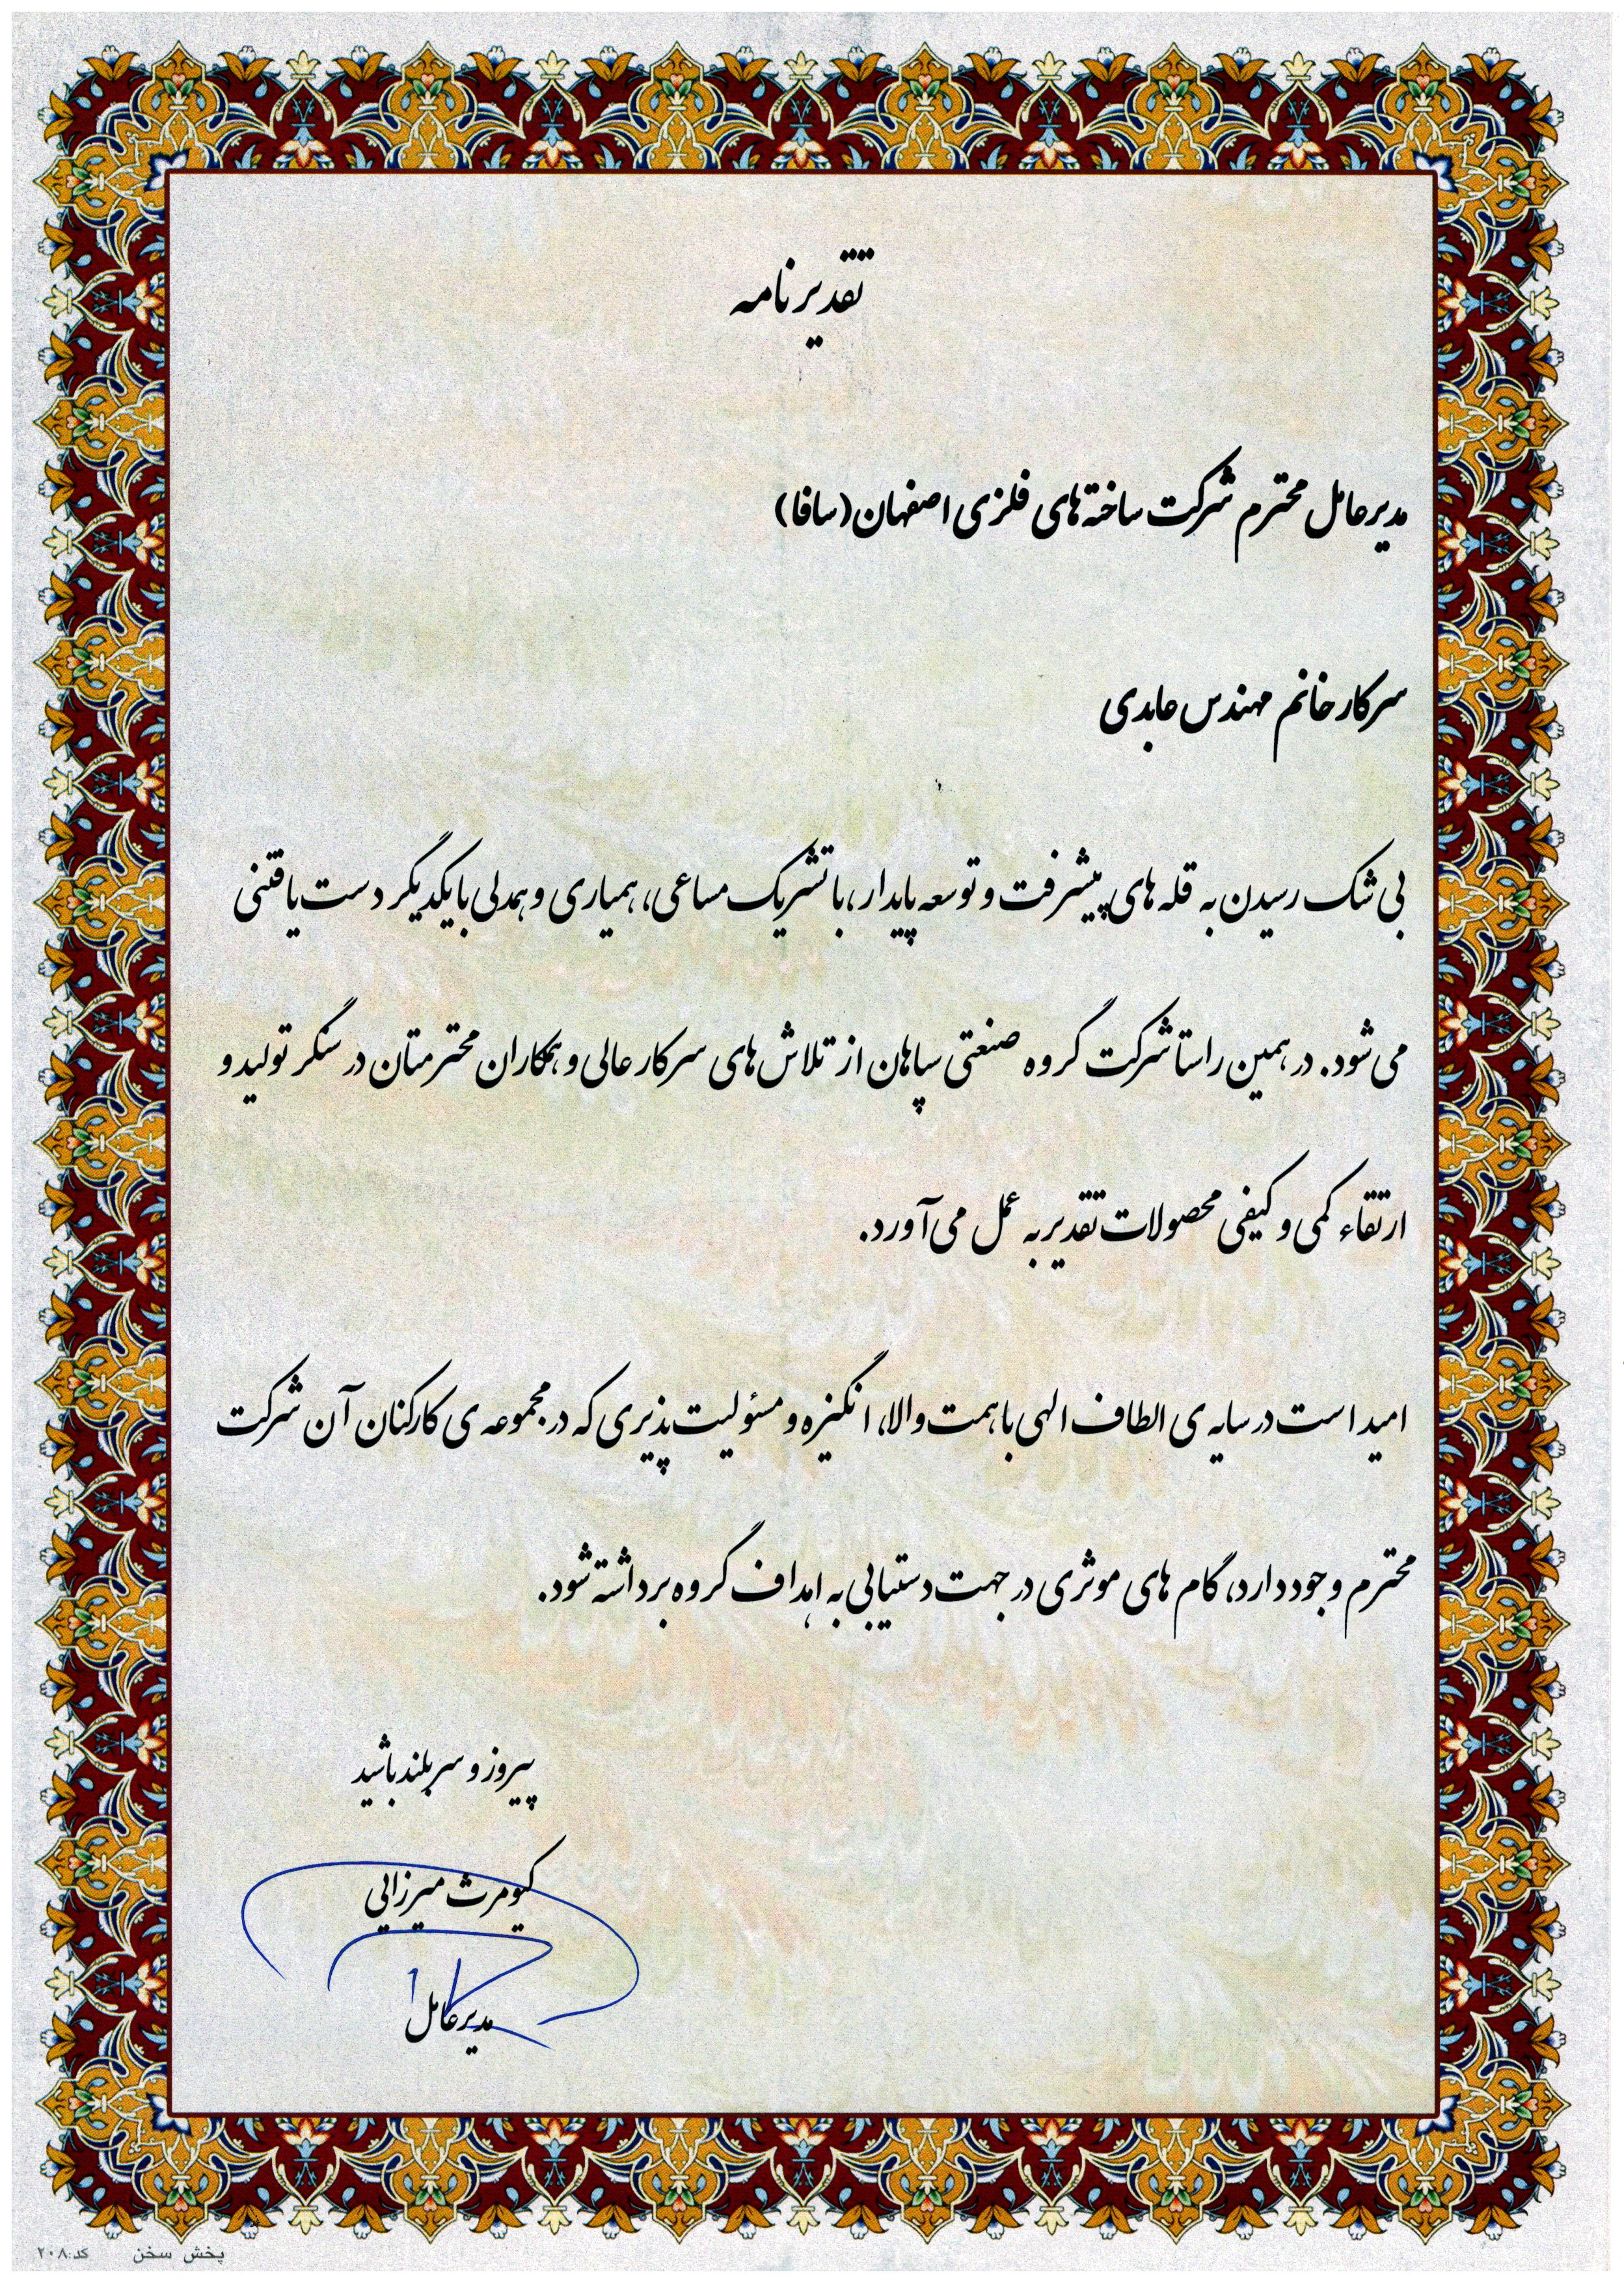 تقدیرنامه
مدیرعامل محترم شرکت ساخته‌های فلزی اصفهان (سافا)
سرکار خانم مهندس عابدی
بی شک رسیدن به قله های پیشرفت و توسعه پایدار، با تشریک مساعی، همیاری و همدلی با یکدیگر دست یافتنی
می شود. در همین راستا شرکت گروه صنعتی سپاهان از تلاش های سرکار عالی و همکاران محترمتان در سنگر تولید و
ارتقاء کمی و کیفی محصولات تقدیر به عمل می آورد.
امید است در سایه ی الطاف الهی با همت والا، انگیزه و مسئولیت پذیری که در مجموعه ی کارکنان آن شرکت
محترم وجود دارد، گام های موثری در جهت دستیابی به اهداف گروه برداشته شود.
پیروز و سربلند باشید
کیومرث میرزایی
مدیرعامل
پخش سخن کد:۲۰۸